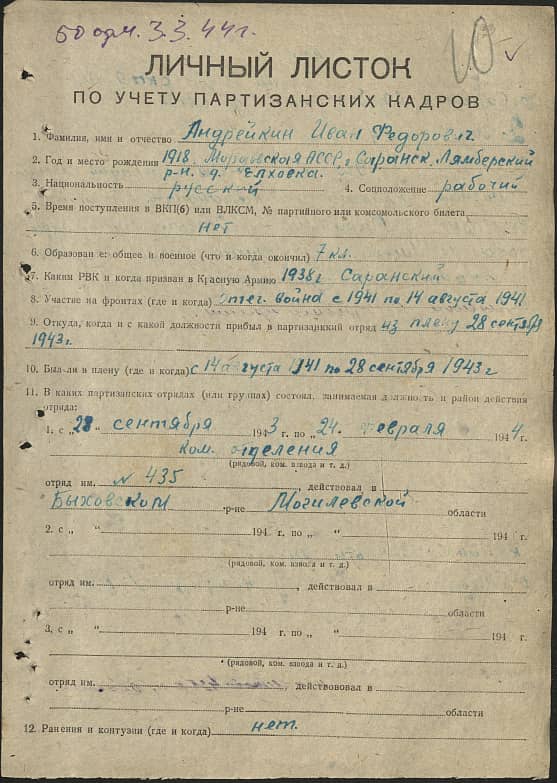 50 арм. 3.3.44 г.
10
ЛИЧНЫЙ ЛИСТОК
ПО УЧЕТУ ПАРТИЗАНСКИХ КАДРОВ
1. Фамилия, имя и отчество Андрейкин Иван Федорович
2. Год и место рождения 1918, Мордовская АССР, г Саранск, Лямберский
р-н. д. Елховка.
3. Национальность русский 4. Соцположение рабочий
5. Время поступления в ВКП(б) или ВЛКСМ, № партийного или комсомольского билета
нет
6. Образование: общее и военное (что и когда окончил) 7 кл.
7. Каким РВК и когда призван в Красную Армию 1938 г Саранский
8. Участие на фронтах (где и когда) Отеч. война с 1941 по 14 августа 1941
9. Откуда, когда и с какой должности прибыл в партизанский отряд из плену 28 сентября
1943 г.
10. Был-ли в плену (где и когда) с 14 августа 1941 по 28 сентября 1943 г
11. В каких партизанских отрядах (или группах) состоял, занимаемая должность и район действия
отряда:
1. с „28 сентября 1943 г. по „24. февраля 1944 г.
ком. отделения
(рядовой, ком. взвода и т. д.)
отряд им. № 435, действовал в
Быховском р-не Могилевской области
2. с „ “ 194 г. по „ “ 194 г.
(рядовой, ком. взвода и т. д.)
отряд им., действовал в
р-не области
3. с „ “ 194 г. по „ “ 194 г.
(рядовой, ком. взвода и т. д.)
отряд им., действововал в
р-не области
12. Ранения и контузии (где и когда) нет.